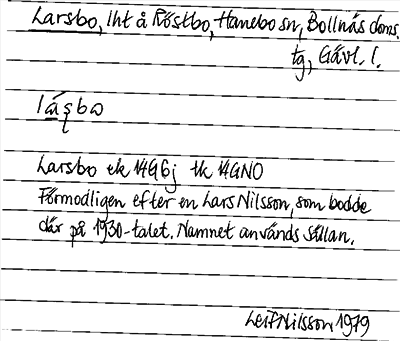 Larsbo, lht å Röstbo, Hanebo sn, Bollnäs doms.
tg, Gävl. l.
lásbω
Larsbo ek 14G6j tk 14GNO
Förmodligen efter en Lars Nilsson, som bodde
där på 1930-talet. Namnet används sällan.
Leif Nilsson 1979